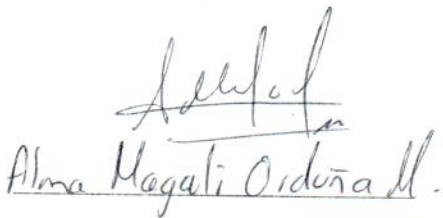 Alma Magali Orduña M.